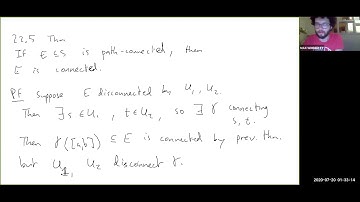 22.5 Thm
If E ⊆ S is path-connected, then
E is connected.
Pf Suppose E disconnected by U₁, U₂.
Then ∃ s ∈ U₁, t ∈ U₂, so ∃ γ connecting
s, t.
Then γ([a,b]) ⊆ E is connected by prev. thm.
but U₁, U₂ disconnect γ.
2020-07-20 01:33:14